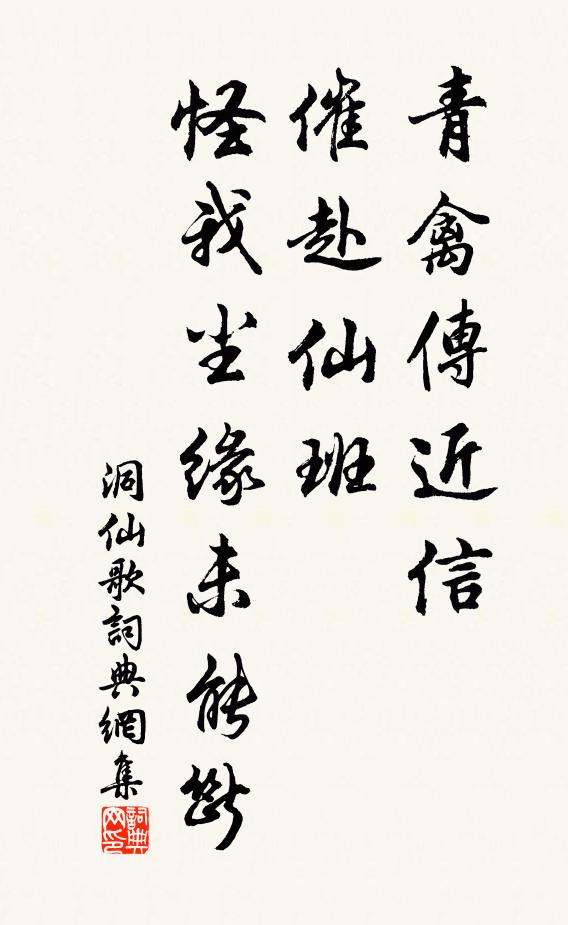 青禽傳近信
催赴仙班
怪我尘緣未能斷
洞仙歌詞典網集
詞典
网印